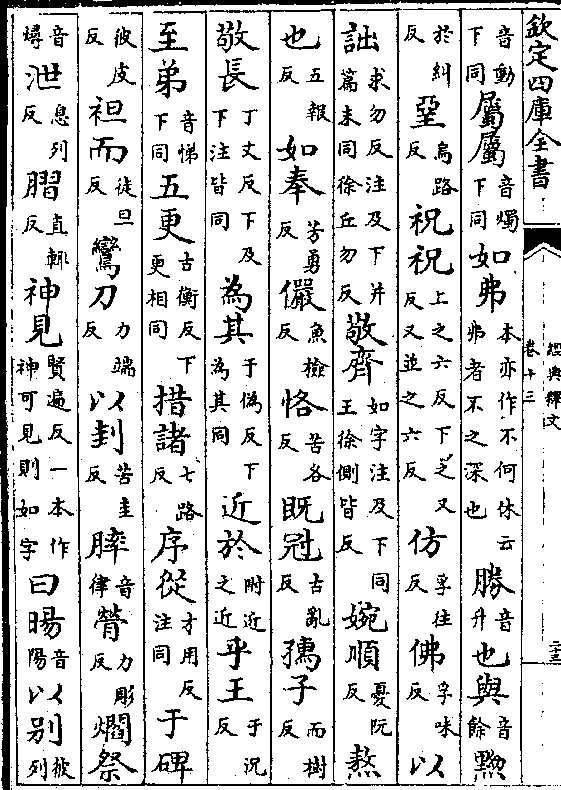 欽定四庫全書
經典釋文
卷十三
二十三
音動下同屬屬音燭下同如弗本亦作不何休云弗者不之深也勝音升也與音餘黝
於糾反堊烏路反祝祝上之六反下之又反又並之六反仿孚往反佛孚味反以
詘求勿反注及下并篇末同徐丘勿反敬齊如字注及下同王徐側皆反婉順憂阮反熬
也五報反如奉芳勇反儼魚檢反恪苦各反既冠古亂反孺子而樹反
敬長丁丈反下及下注皆同為其于偽反下為其同近於附近之近乎王于況反
至弟音悌下同五更古衡反下更相同措諸七路反序從才用反注同于碑
彼皮反袒而徒旦反鸞刀力端反以刲苦圭反膟音律膋力彫反爓祭
音燖泄息列反腽直輒反神見賢遍反一本作神可見則如字曰暘音陽以别彼列